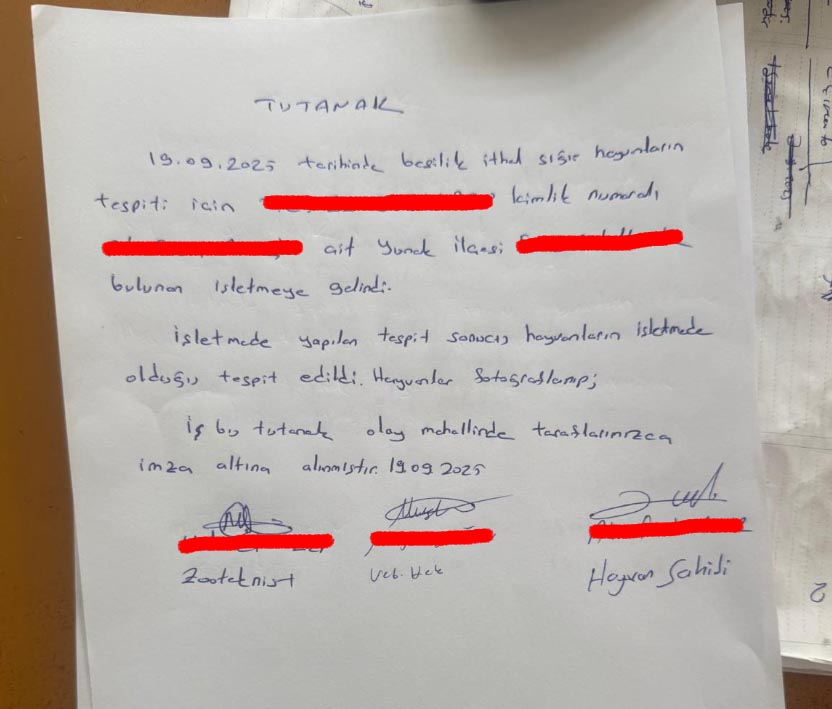 TUTANAK
19.09.2025 tarihinde besilik ithal sığır hayvanların
tespiti için kimlik numaralı
ait Yunak ilçesi
bulunan işletmeye gelindi.
işletmede yapılan tespit sonucu hayvanların işletmede
olduğu tespit edildi. Hayvanlar fotoğraflanıp;
iş bu tutanak olay mahallinde taraflarınızca
imza altına alınmıştır. 19.09 2025
Zooteknist Vet. Hek Hayvan Sahibi